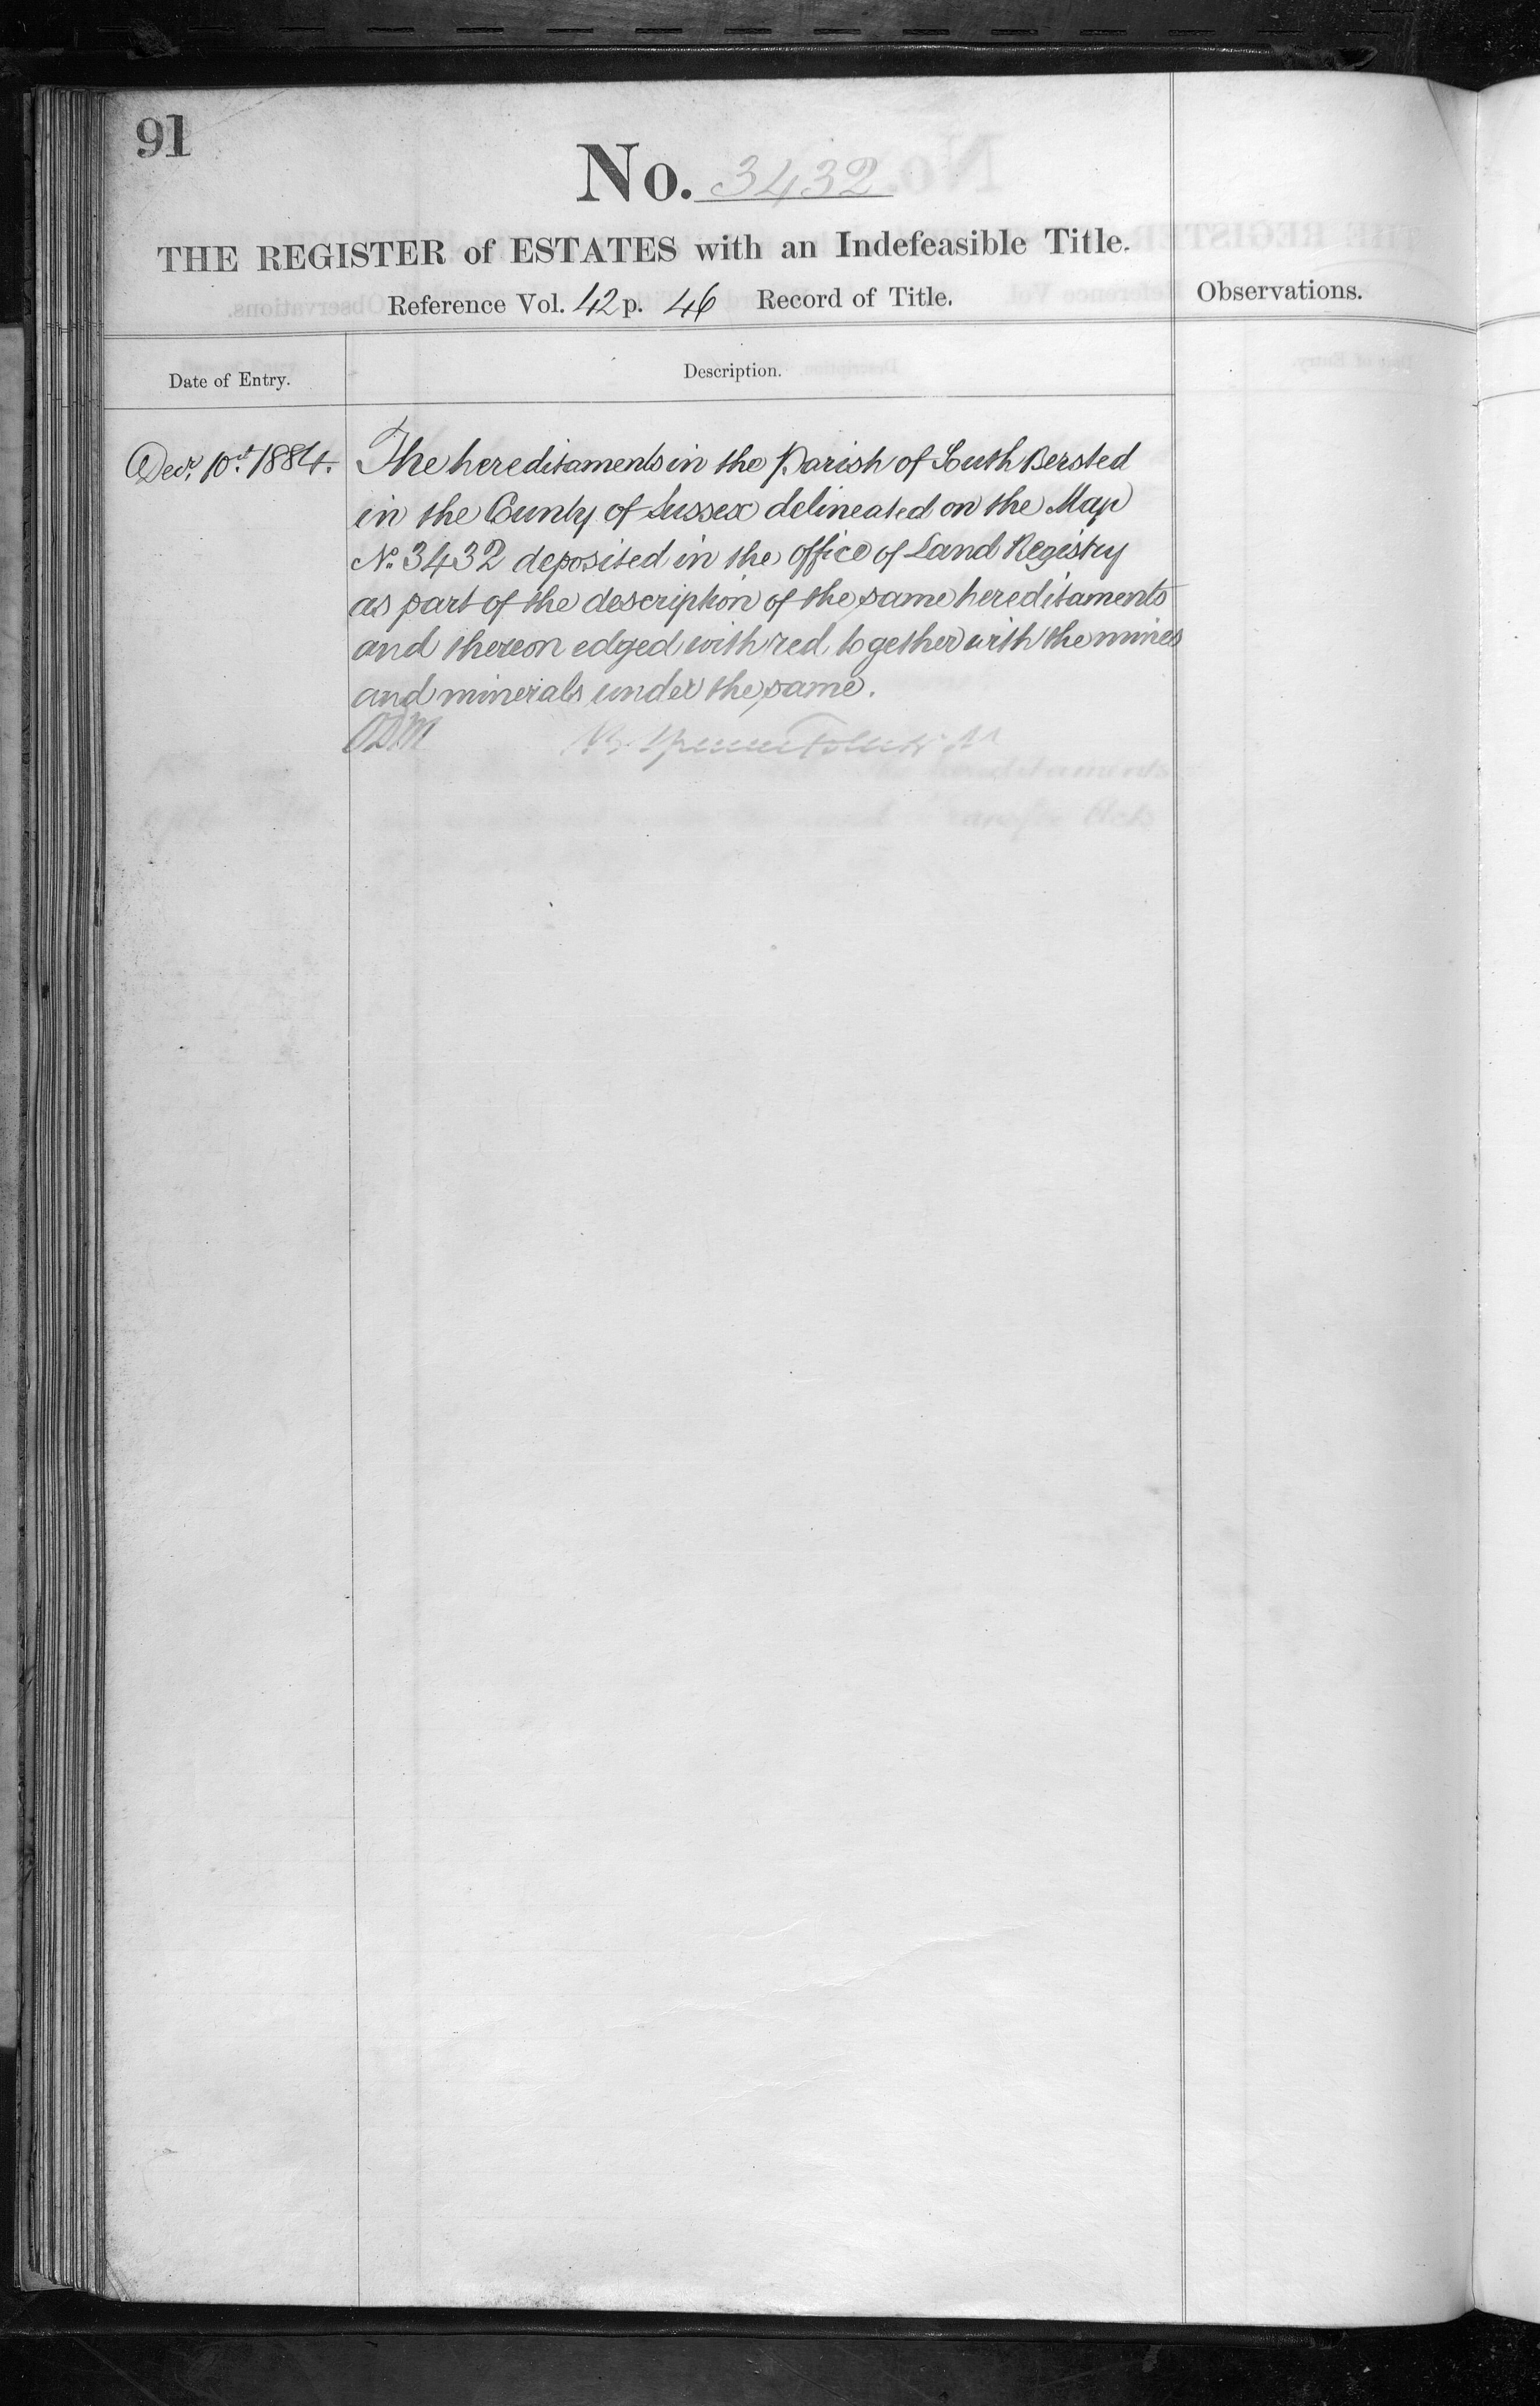 91
No. 3432
THE REGISTER of ESTATES with an Indefeasible Title.
Reference Vol. 42 p. 46 Record of Title.
Observations.
Date of Entry.
Description.
Decr. 10th 1884.
The hereditaments in the Parish of South Bersted
in the County of Sussex delineated on the Map
No. 3432 deposited in the office of Land Registry
as part of the description of the same hereditaments
and thereon edged with red together with the mines
and minerals under the same.